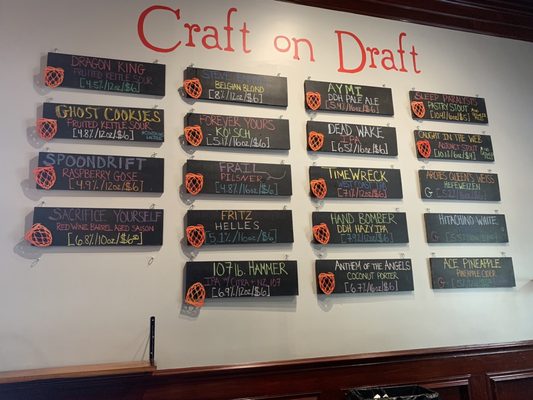 Craft on Draft
DRAGON KING
FRUITED KETTLE SOUR
[4.5%/12oz/$6]
GHOST COOKIES
FRUITED KETTLE SOUR
[4.8%/12oz/$6]
SPOONDRIFT
RASPBERRY GOSE
[4.9%/12oz/$6]
SACRIFICE YOURSELF
RED WINE BARREL AGED SAISON
[6.8%/10oz/$6]
BELGIAN BLOND
[8%/12oz/$6]
FOREVER YOURS
KÖLSCH
[5.1%/12oz/$6]
FRAIL
PILSNER
[4.8%/12oz/$6]
FRITZ
HELLES
5.1%/12oz/$6
107 lb. HAMMER
IPA w/ CITRA + NZ 107
[6.9%/12oz/$6]
AYMI
DDH PALE ALE
[5.4%/16oz/$6]
DEAD WAKE
IPA
[6.5%/16oz/$6]
TIMEWRECK
WEST COAST IPA
HAND BOMBER
DDH HAZY IPA
[7%/16oz/$6]
ANTHEM OF THE ANGELS
COCONUT PORTER
[6.7%/16oz/$6]
SLEEP PARALYSIS
PASTRY STOUT
CAUGHT IN THE WEB
ADJUNCT STOUT
ANDES QUEEN'S WEISS
HEFEWEIZEN
G
HITACHINO WHITE
ACE PINEAPPLE
PINEAPPLE CIDER
G